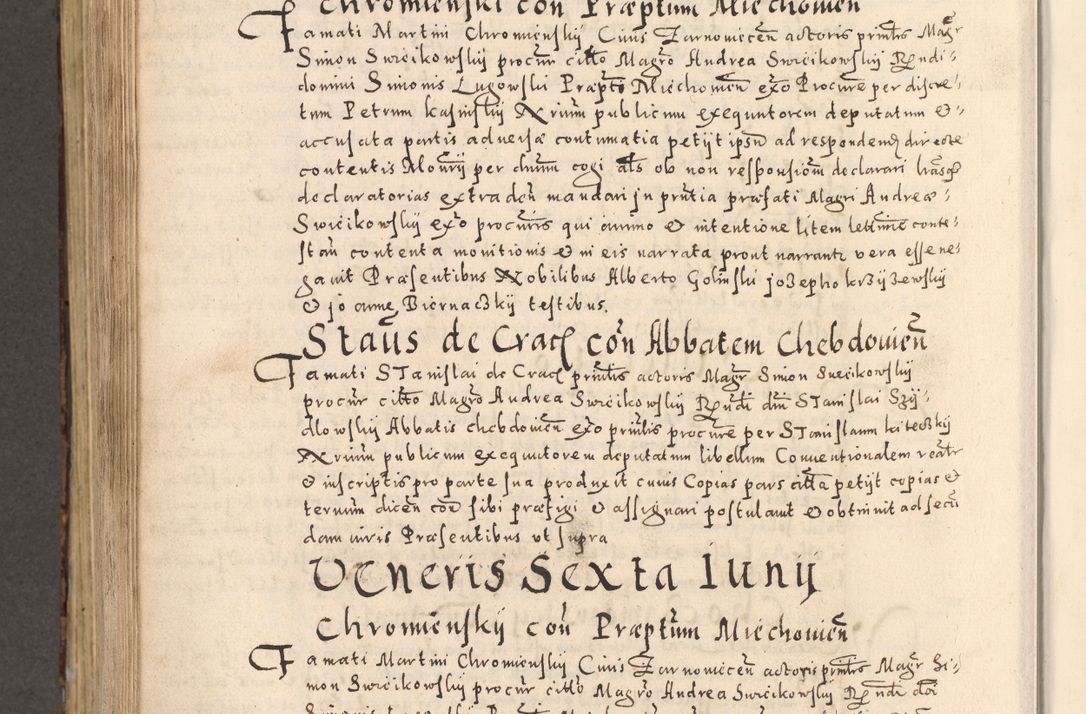 Chromienskj con̄ Præptum Miechouien̄
Famati Martini Chromienskij Ciuis Zarnouicen̄ actoris prn̄lis Magr̄
Simon Swiėikowskij procur̄ citto Magr̄o Andrea Swiėikowskij Rn̄di
domini Simonis Lugowski Præpto Miechouien̄ exo Procure per discre-
tum Petrum kasinskij Nrium publicum exequutorem deputatum et
accusata partis aduersæ contumatia petijt ipsū ad respondend directe
contentis Monrij per dnum cogi als ob non responsiom̄ declarari lrasq
declaratorias extraden̄ mandari jn prn̄tia præfati Magri Andreæ
Swiėikowskij exo procuris qui animo et intentione litem letīme conte-
stan̄ contenta monitionis et in eis narrata prout narrantr vera esse ne-
gauit Præsentibus Nobilibus Alberto Golinski jozepho krzijzewskij
et joanne Biernaczkij testibus.
Staūs de Crac con̄ Abbatem Chebdouien̄
Famati STanislai de Crac prn̄lis actoris Magr̄ Simon Sueėikowskij
procur̄ citto Magr̄o Andrea Swiėikowskij Rn̄di dn̄i STanislai Szij-
dlowskij Abbatis chebdouien̄ exo prn̄lis procure per STanislaum kiteczkij
Nrium publicum exequutorem deputatum libellum Conuentionalem reatr
et inscriptis pro parte sua produxit cuius Copias pars citta petijt copias et
terminum dicen̄ con̄ sibi præfigi et assignari postulauit et obtinuit ad secu
dam iuris Præsentibus vt supra
Veneris Sexta Iunij
Chromienskij con̄ Præptum Miechouien̄
Famati Martini Chromienskij Ciuis Zarnouicen̄ actoris prn̄lis Magr̄ Si-
mon Swiėikowskij procur̄ citto Magr̄o Andrea Swiėikowskij Rn̄di dn̄i